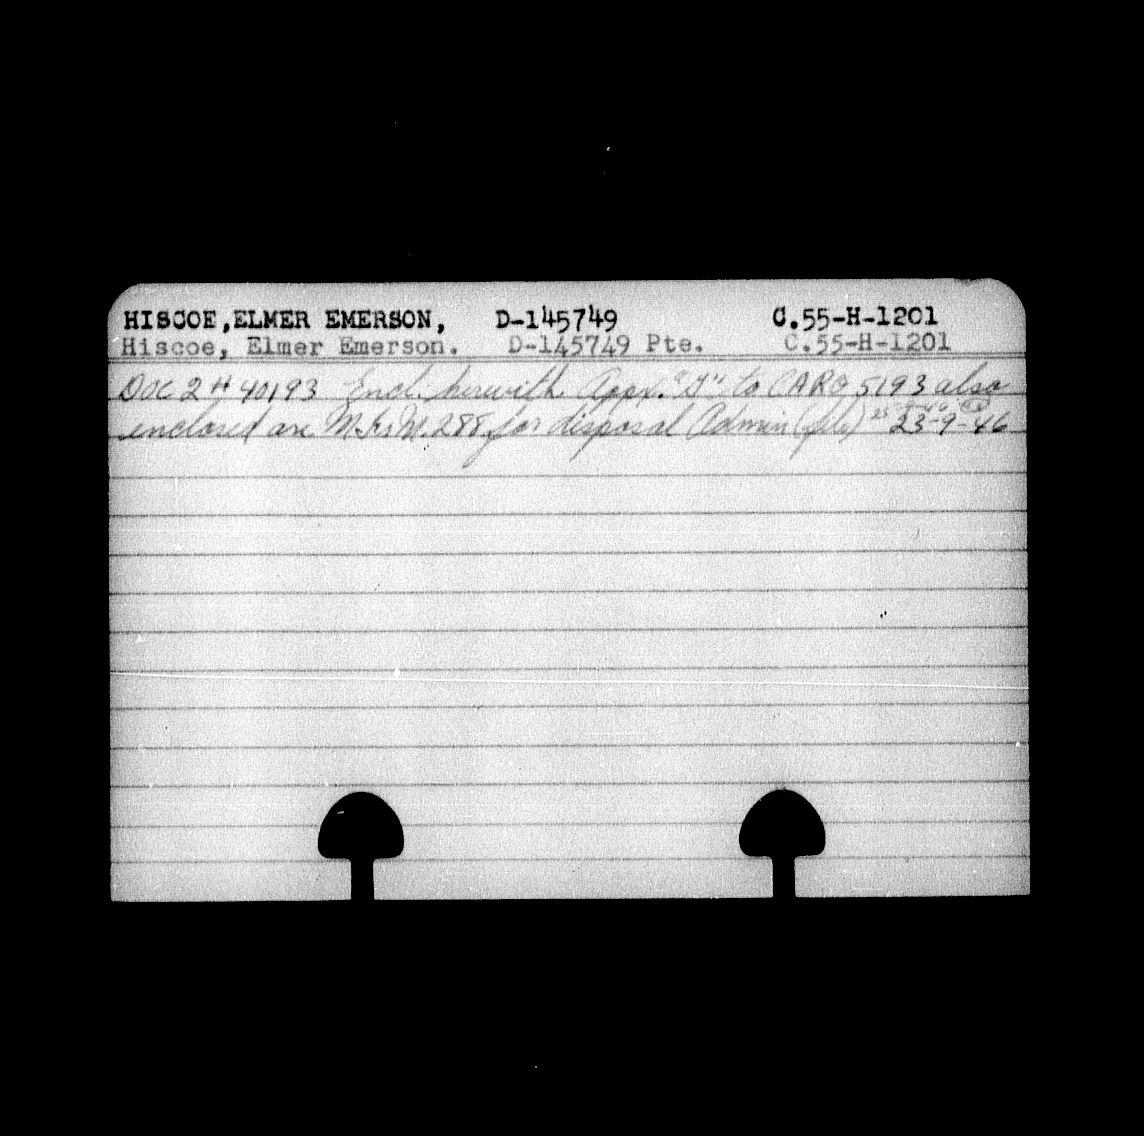 HISCOE,ELMER EMERSON, D-145749 C.55-H-1201
Hiscoe, Elmer Emerson. D-145749 Pte. C.55-H-1201
DOC 2 H 40193 Encl. herwith Appx. "G" to CARO 5193 also
enclosed are M.Fs M. 288 for disposal Admin 23-9-46